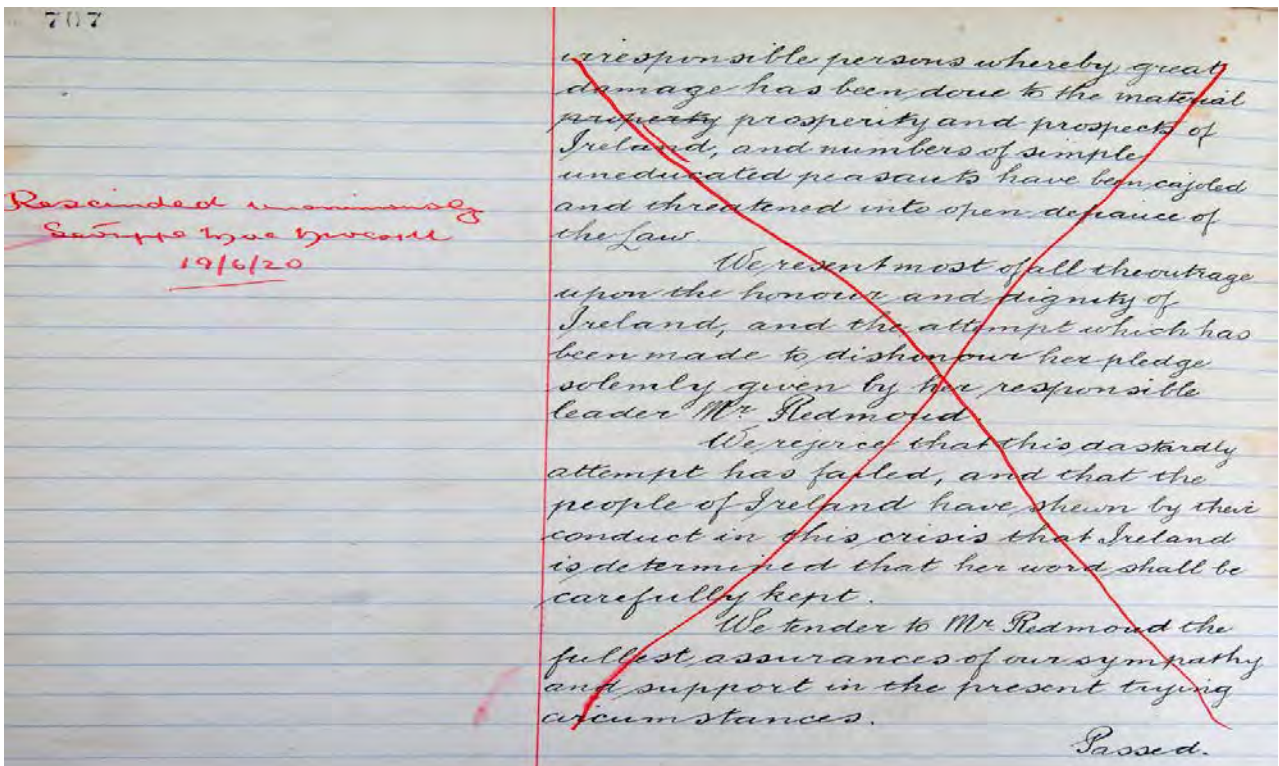 707
irresponsible persons whereby great
damage has been done to the material
property prosperity and prospects of
Ireland, and numbers of simple
uneducated peasants have been cajoled
and threatened into open defiance of
the Law.
We resent most of all the outrage
upon the honour and dignity of
Ireland, and the attempt which has
been made to dishonour her pledge
solemly given by her responsible
leader Mr. Redmond.
We rejoice that this dastardly
attempt has failed, and that the
people of Ireland have shewn by their
conduct in this crisis that Ireland
is determined that her word shall be
carefully kept.
We tender to Mr. Redmond the
fullest assurances of our sympathy
and support in the present trying
circumstances.
Passed.
Rescinded unanimously
Mac
19/6/20